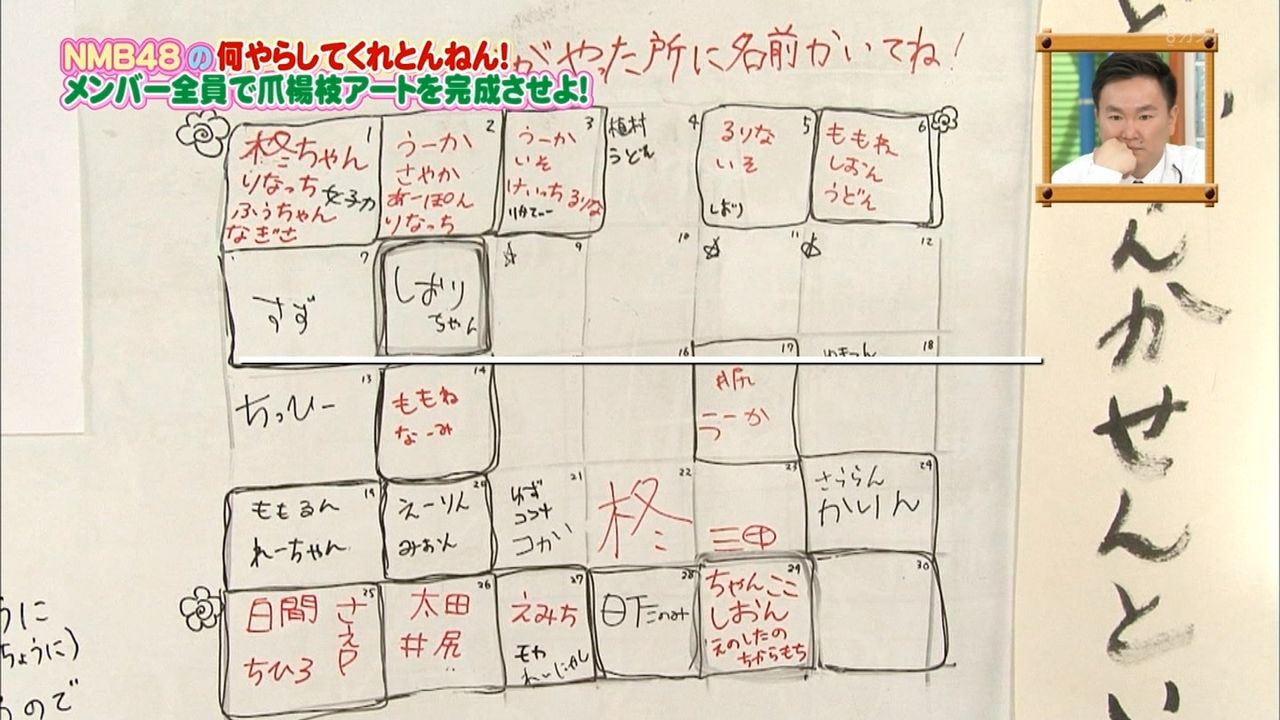 NMB48の何やらしてくれとんねん!
メンバー全員で爪楊枝アートを完成させよ!
がやった所に名前かいてね!
1
柊ちゃん
りなっち 女子力
ふぅちゃん
なぎさ
2
うーか
さやか
あーぽん
りなっち
3
うーか
いそ
けいっち るりな
りかてぃー
4
植村
うどん
5
るりな
いそ
しおり
6
ももね
しおん
うどん
7
すず
しおり
ちゃん
9
10
11
12
13
ちっひー
14
ももね
なーみ
16
17
井尻
うーか
18
19
ももるん
れーちゃん
20
えーりん
みおん
21
ゆず
ココナ
コがい
22
柊
23
三田
24
さららん
かりん
25
白間 さえP
ちひろ
26
太田
井尻
27
えみち
モカ
れいにゃん
28
日下このみ
29
ちゃんここ
しおん
えのしたの
ちからもち
30
うに
ちょうに)
ので
どんかせんとい